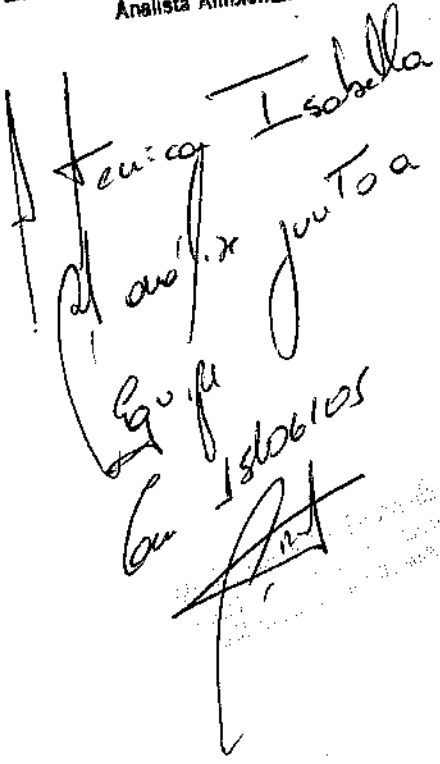 Analista Ambiental
A Técnica Isabella
p/ análise junto a
Equipe
Em 15/06/05